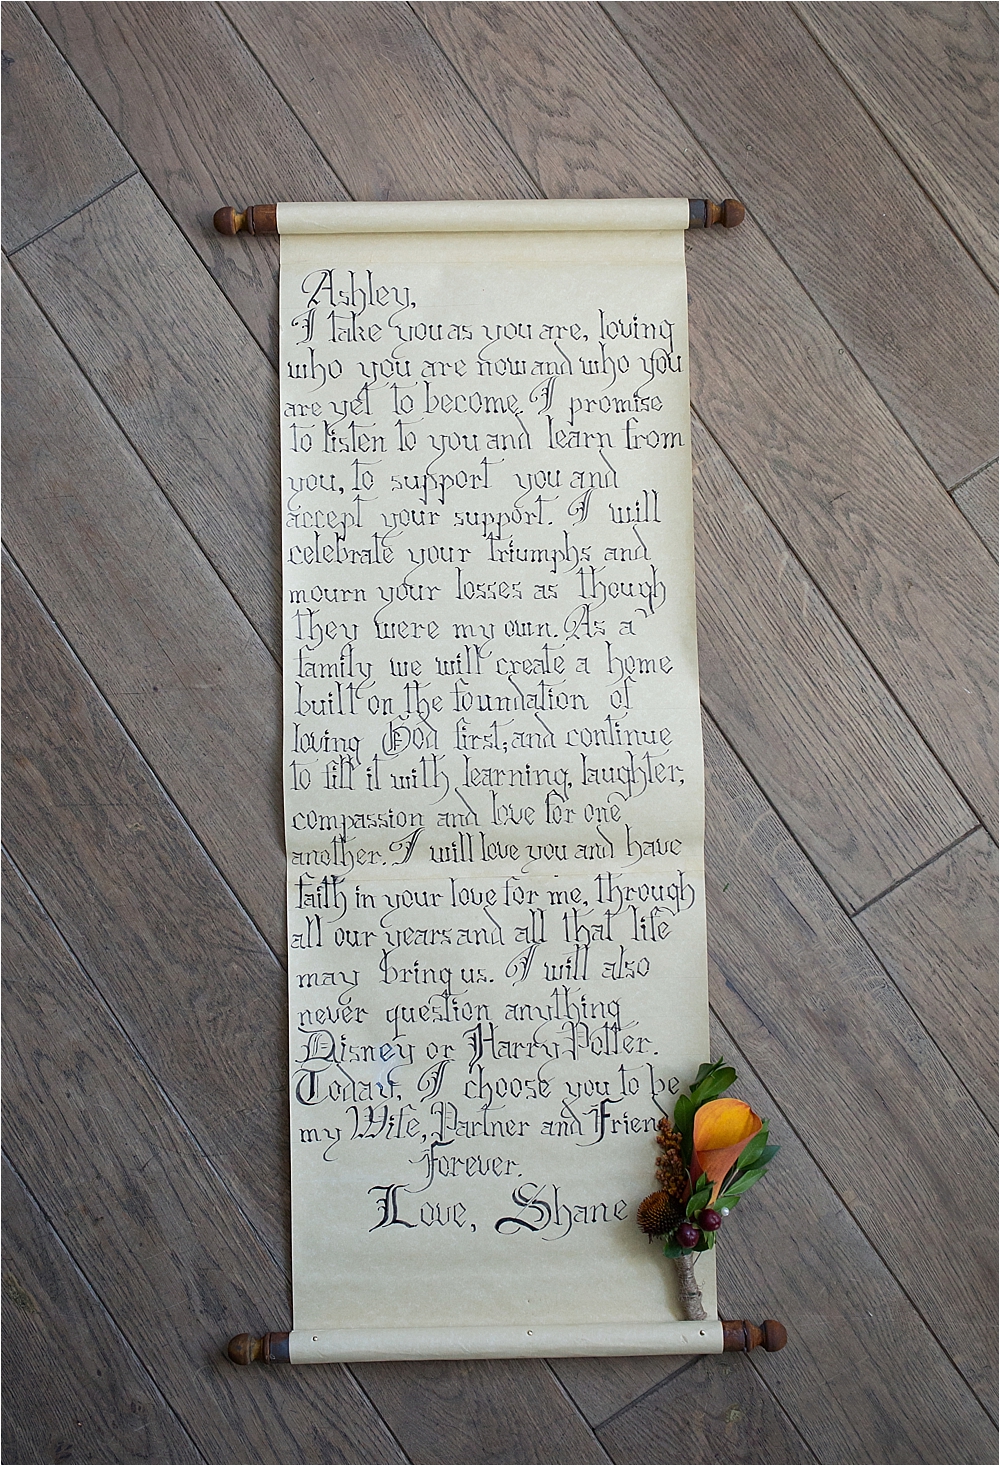 Ashley,
I take you as you are, loving
who you are now and who you
are yet to become. I promise
to listen to you and learn from
you, to support you and
accept your support. I will
celebrate your triumphs and
mourn your losses as though
they were my own. As a
family we will create a home
built on the foundation of
loving God first, and continue
to fill it with learning, laughter,
compassion and love for one
another. I will love you and have
faith in your love for me, through
all our years and all that life
may bring us. I will also
never question anything
Disney or Harry Potter.
Today, I choose you to be
my Wife, Partner and Frien
Forever.
Love, Shane